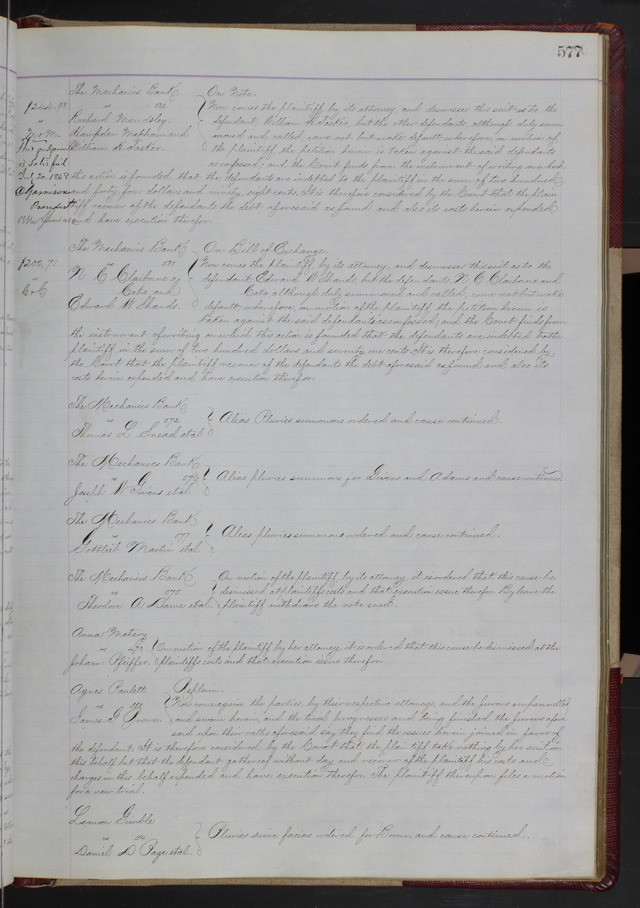 577
The Mechanics Bank On Note.
$244.98 vs 132 Now comes the plaintiff by its attorney, and dismisses the suit as to the
" Richard Wendsley. defendant William H. Lasker, but the other defendants although duly sum-
M & M Hampden Mepham and moned and called, come not but make default; wherefore, on motion of
This judgment William H. Lasker. the plaintiff, the petition herein is taken against the said defendants
is satisfied as confessed; and the Court finds from the instrument of writing on which
Jul. 20. 1868 this action is founded, that the defendants are indebted to the plaintiff in the sum of two hundred
and forty four dollars and ninety eight cents. It is therefore considered by the Court that the plain-
President tiff recover of the defendants the debt aforesaid as found and also its costs herein expended
and have execution therefor.
The Mechanics Bank On Bill of Exchange.
$200.71 vs Now comes the plaintiff, by its attorney, and dismisses the suit as to the
" N. C. Claiborne & defendant Edward W. Shands, but the defendants, N C Claiborne and
C & C Cates and Cates although duly summoned and called, come not but make
Edward W Shands. default; wherefore, on motion of the plaintiff the petition herein is
taken against the said defendants as confessed; and the Court finds from
the instrument of writing on which this action is founded that the defendants are indebted to the
plaintiff in the sum of two hundred dollars and seventy one cents. It is therefore considered by
the Court that the plaintiff recover of the defendants the debt aforesaid as found and also its
costs herein expended and have execution therefor.
The Mechanics Bank
vs 072 Alias Pluries summons ordered and cause continued.
Thomas L Snead et al
The Mechanics Bank
vs Alias pluries summons for Givens and Adams and cause continued.
Joseph W Givens et al
The Mechanics Bank
vs Alias pluries summons ordered and cause continued.
Gottlieb Martin et al
The Mechanics Bank On motion of the plaintiff, by its attorney, it is ordered that this cause be
vs dismissed at plaintiffs costs and that execution issue therefor. By leave the
Theodore A Davis et al. plaintiff withdraws the note sued.
Anna Matern
vs On motion of the plaintiff by her attorney it is ordered that this cause be dismissed at the
Johann Pfeiffer. plaintiffs costs and that execution issue therefor.
Agnes Paulett Replevin.
vs Now come again the parties, by their respective attorneys, and the jurors empannelled
James G Brown. and sworn herein, and the trial progresses and being finished the jurors afore-
said upon their oaths aforesaid say they find the issues herein joined in favor of
the defendant. It is therefore considered by the Court that the plaintiff take nothing by her suit in
this behalf but that the defendant go thereof without day and recover of the plaintiff his costs and
charges in this behalf expended and have execution therefor. The plaintiff thereupon files a motion
for a new trial.
Lemon Gimble
vs Pluries scire facias ordered for Brown and cause continued.
Daniel D Page et al.